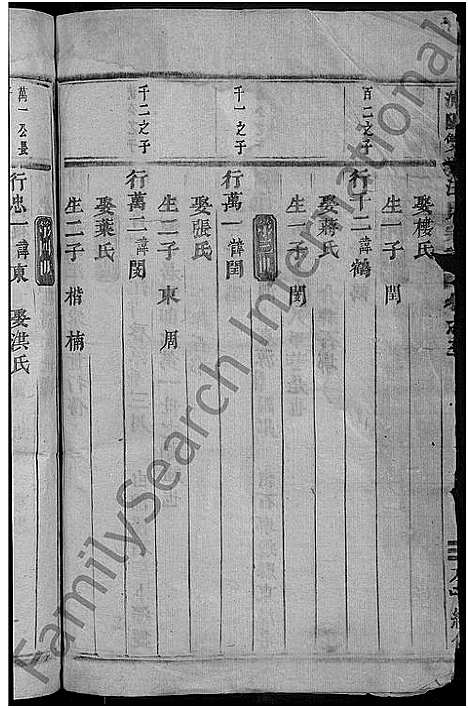 娶樓氏
生一子 閏
百二之子
行千二 諱鶴
娶蔣氏
生一子 閔
千一之子
行萬一 諱閏
娶張氏
生二子 東 周
千二之子
行萬二 諱閔
娶葉氏
生二子 楷 楠
萬一公長
行忠一 諱東 娶洪氏
FamilySearch International